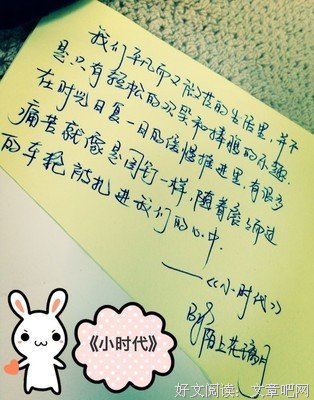 我们平凡而又微茫的生活里,并不
是只有轻松的欢笑和捧腹的乐趣。
在时光日复一日的缓慢推进里,有很多
痛苦就像是图钉一样,随着滚动而过
的车轮被扎进我们的心中。
——《小时代》
By 陌上花满月
《小时代》
好文阅读:文章吧网